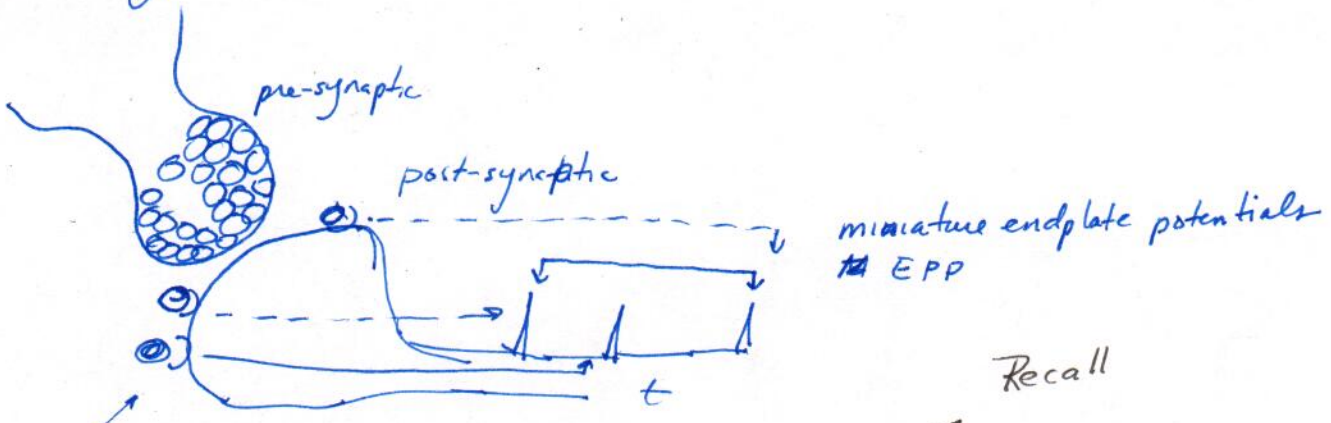 pre-synaptic
post-synaptic
miniature endplate potentials
EPP
t
Recall